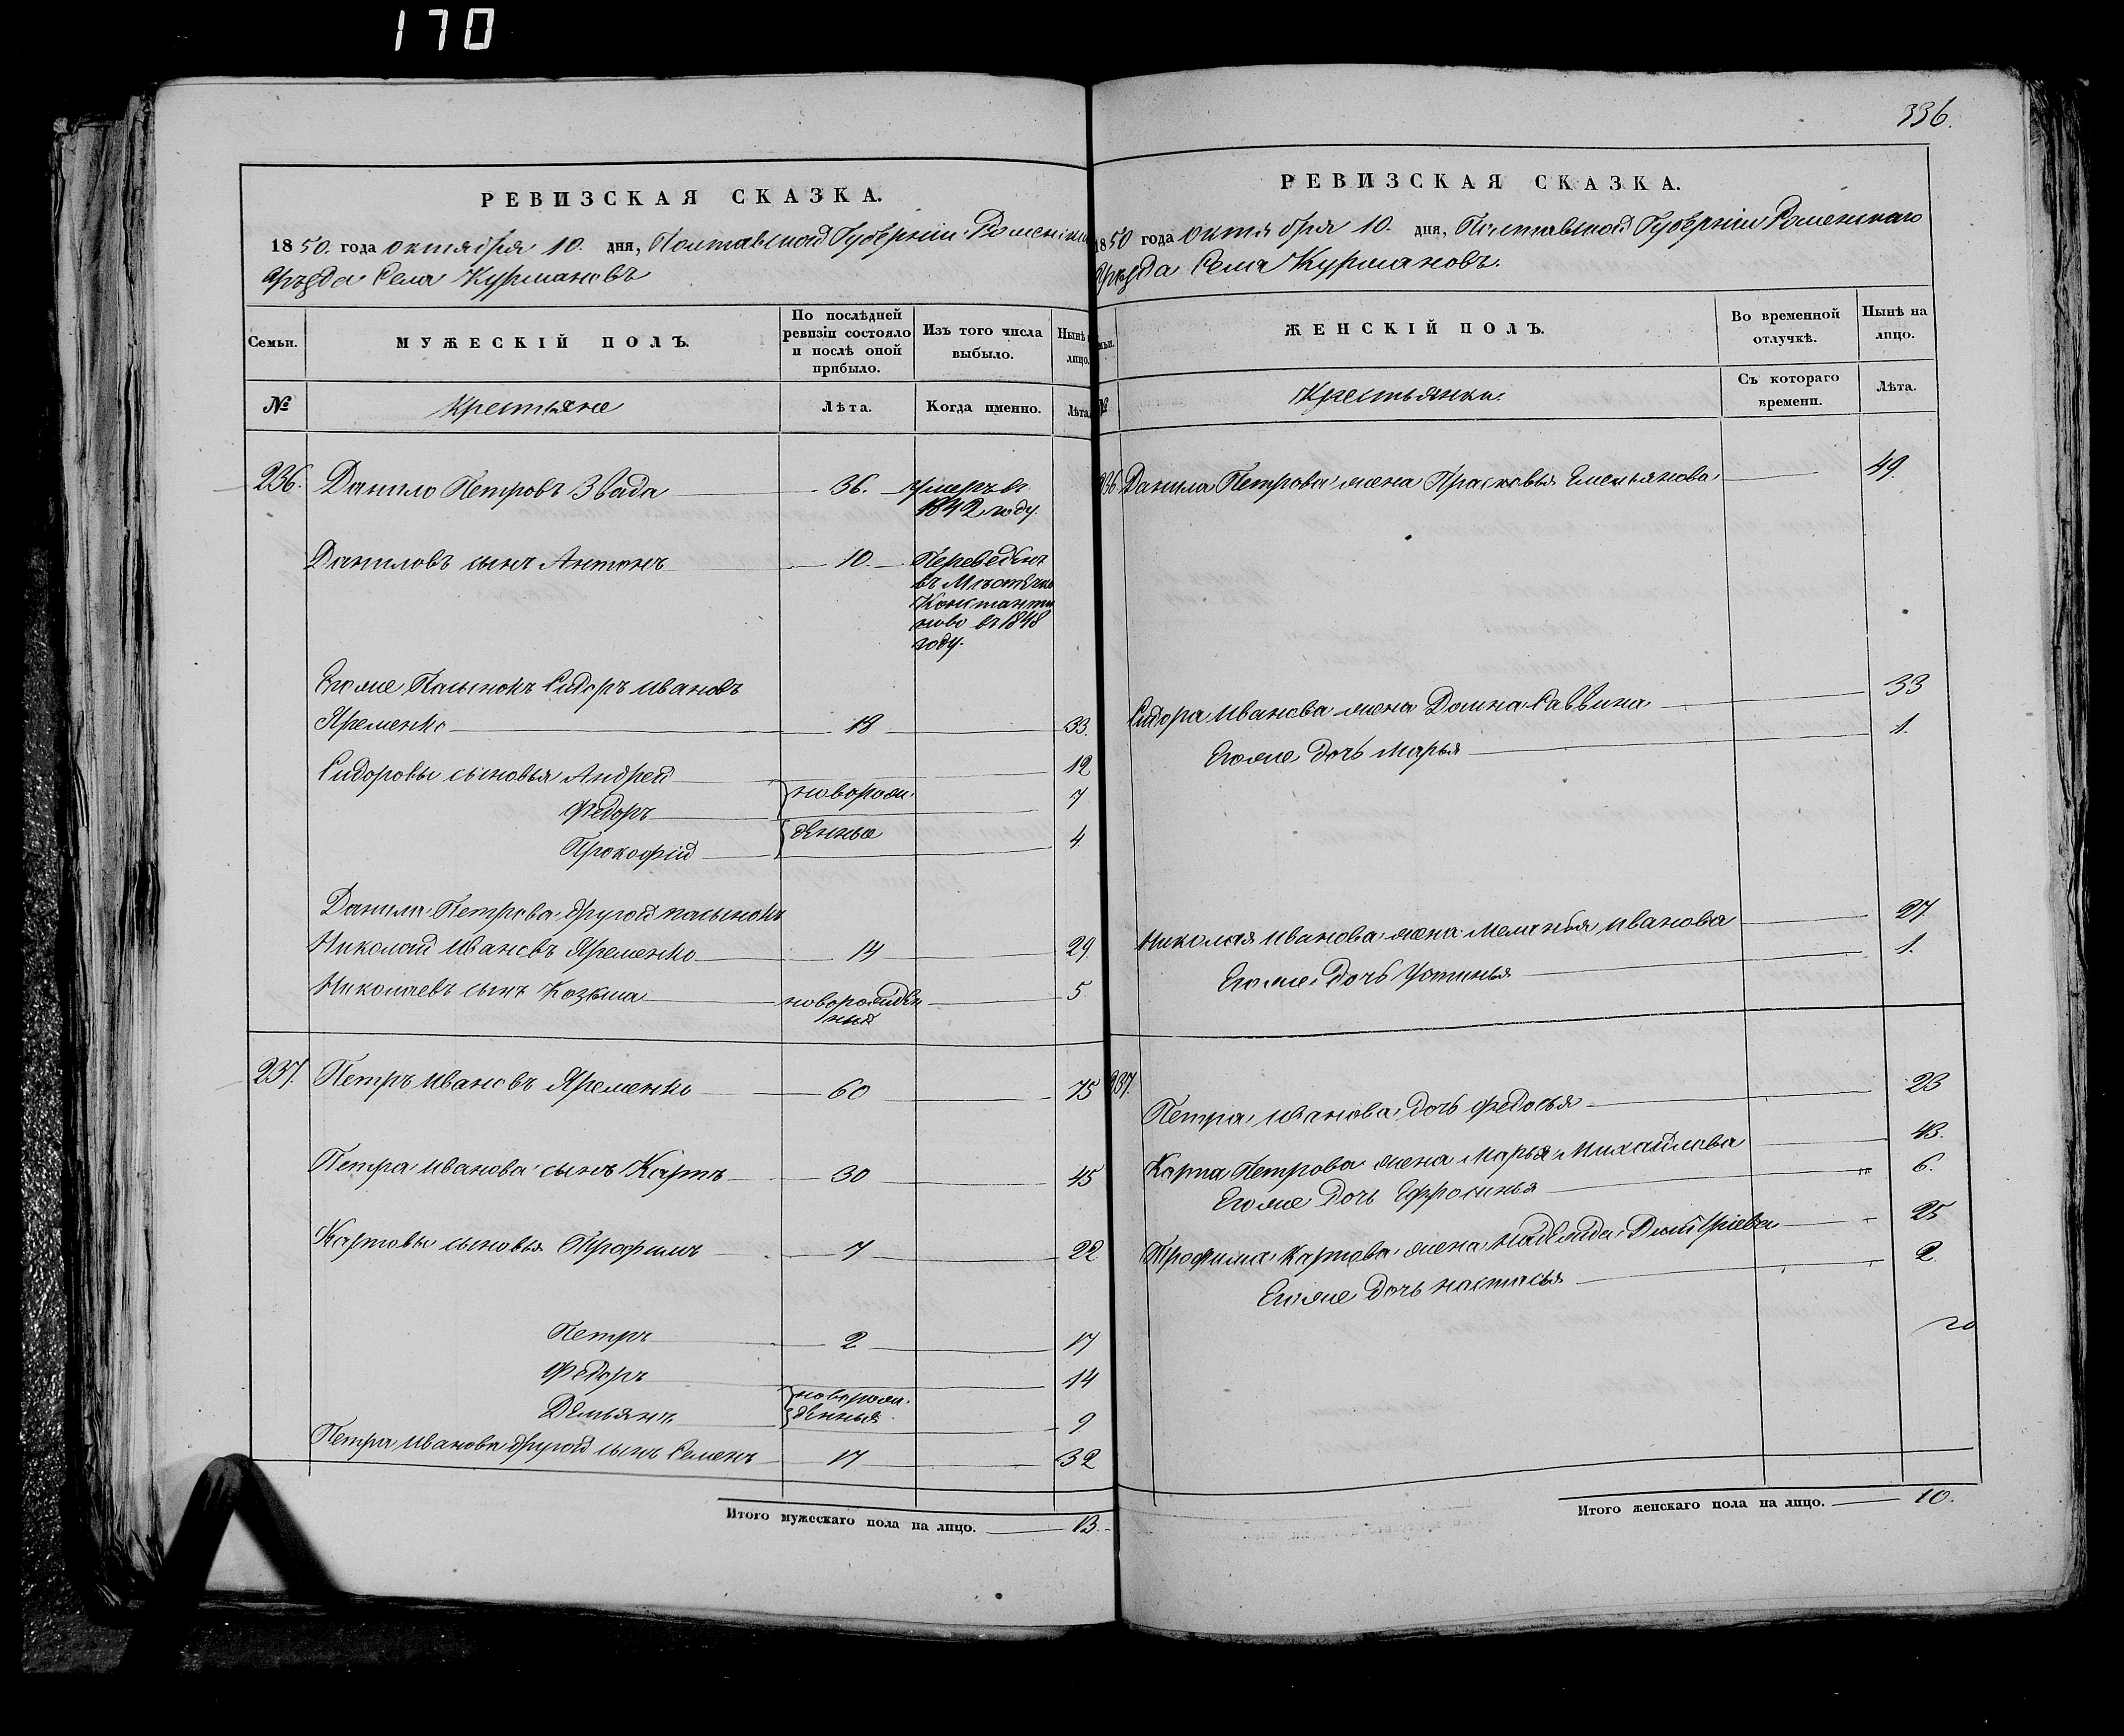 170
РЕВИЗСКАЯ СКАЗКА.
1850. года октября 10. дня, Полтавской Губерніи Роменскаго
уѣзда Села Курмановъ
Семьи.
МУЖЕСКІЙ ПОЛЪ.
По послѣдней ревизіи состояло и послѣ оной прибыло.
Изъ того числа выбыло.
Нынѣ на лицо.
№
Крестьяне
Лѣта.
Когда именно.
Лѣта.
236. Данило Петровъ Звада 36. умеръ въ
1842 году.
Даниловъ сынъ Антонъ 10. Переведенъ
въ Мѣстечко
Константи
ново въ 1848
году.
Егоже Пасынокъ Сидоръ Ивановъ
Яременко 18 33.
Сидоровы сыновья Андрей 12
Федоръ новорож. 7
Прокофій денные 4
Данила Петрова другой пасынокъ
Николай Ивановъ Яременко 14 29
Николаевъ сынъ Козьма новорожден 5
ный
237. Петръ Ивановъ Яременко 60 75
Петра Иванова сынъ Карпъ 30 45
Карповы сыновья Трофимъ 7 22
Петръ 2 17
Федоръ 14
новорож.
Демьянъ денныя 9
Петра Иванова другой сынъ Семенъ 17 32
Итого мужескаго пола на лицо. 13.
336.
РЕВИЗСКАЯ СКАЗКА.
1850 года октября 10. дня, Полтавской Губерніи Роменскаго
уѣзда Села Курмановъ.
ЖЕНСКІЙ ПОЛЪ.
Во временной отлучкѣ.
Нынѣ на лицо.
№
Крестьянки
Съ котораго времени.
Лѣта.
236 Данила Петрова жена Прасковья Емельянова 49.
Сидора Иванова жена Домна Саввина 33
Егоже дочь Марья 1.
Николая Иванова жена Меланья Иванова 27.
Егоже дочь Устинья 1.
237.
Петра Иванова дочь Федосья 23
Карпа Петрова жена Марья Михайлова 43.
Егоже дочь Ефросинья 6.
Трофима Карпова жена Надежда Дмитріева 25
Егоже дочь Настасья 2.
Итого женскаго пола на лицо. 10.